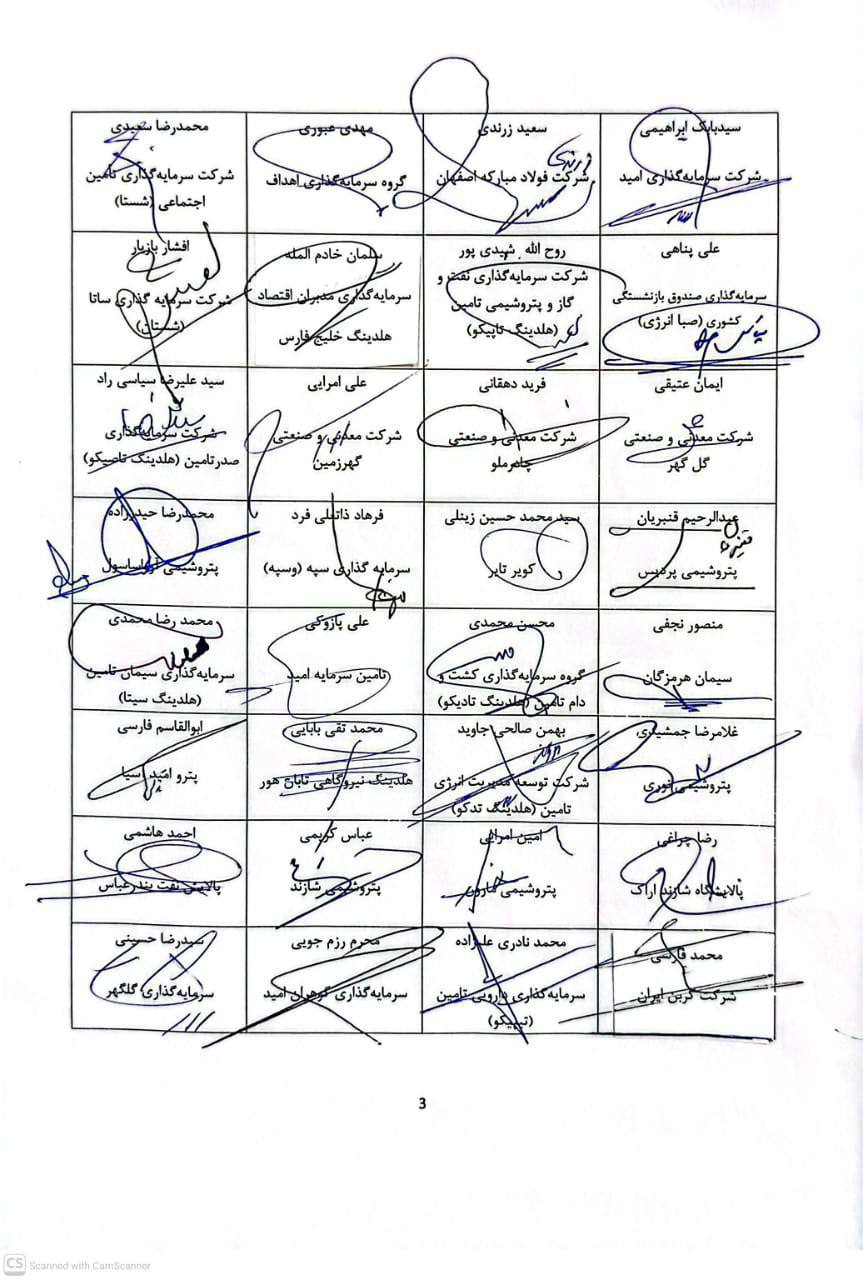 سیدبابک ابراهیمی
شرکت سرمایه‌گذاری امید
سعید زرندی
زرندی
شرکت فولاد مبارکه اصفهان
مهدی عبوری
گروه سرمایه‌گذاری اهداف
محمدرضا سعیدی
شرکت سرمایه‌گذاری تامین
اجتماعی (شستا)
علی پناهی
سرمایه‌گذاری صندوق بازنشستگی
کشوری (صبا انرژی)
روح الله شهیدی پور
شرکت سرمایه‌گذاری نفت و
گاز و پتروشیمی تامین
(هلدینگ تاپیکو)
سلمان خادم المله
سرمایه‌گذاری مدبران اقتصاد
هلدینگ خلیج فارس
افشار بازیار
شرکت سرمایه گذاری ساتا
(شستان)
ایمان عتیقی
شرکت معدنی و صنعتی
گل گهر
فرید دهقانی
شرکت معدنی و صنعتی
چادرملو
علی امرایی
شرکت معدنی و صنعتی
گهرزمین
سید علیرضا سیاسی راد
شرکت سرمایه‌گذاری
صدرتامین (هلدینگ تاصیکو)
عبدالرحیم قنبریان
پتروشیمی پردیس
سید محمد حسین زینلی
کویر تایر
فرهاد ذاتعلی فرد
سرمایه گذاری سپه (وسپه)
محمدرضا حیدرزاده
پتروشیمی آریاساسول
منصور نجفی
سیمان هرمزگان
محسن محمدی
گروه سرمایه‌گذاری کشت و
دام تامین (هلدینگ تادیکو)
علی پازوکی
تامین سرمایه امید
محمد رضا محمدی
سرمایه‌گذاری سیمان تامین
(هلدینگ سیتا)
غلامرضا جمشیدی
پتروشیمی نوری
بهمن صالحی جاوید
شرکت توسعه مدیریت انرژی
تامین (هلدینگ تدکو)
محمد تقی بابایی
هلدینگ نیروگاهی تابان هور
ابوالقاسم فارسی
پترو امید آسیا
رضا چراغی
پالایشگاه شازند اراک
امین امرایی
پتروشیمی مارون
عباس کریمی
پتروشیمی شازند
احمد هاشمی
پالایش نفت بندرعباس
محمد فارسی
شرکت کربن ایران
محمد نادری علیزاده
سرمایه‌گذاری دارویی تامین
(تیپیکو)
محرم رزم جویی
سرمایه‌گذاری گوهران امید
سیدرضا حسینی
سرمایه‌گذاری گلگهر
3
CS Scanned with CamScanner